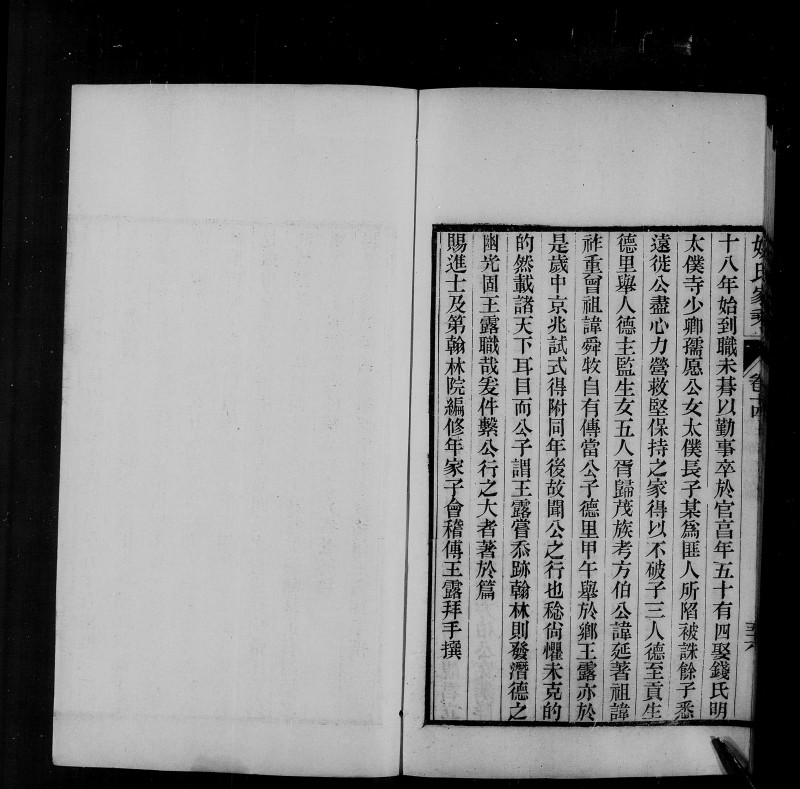 姚氏家乘
卷十四
十八年始到職未朞以勤事卒於官啇年五十有四娶錢氏明
太僕寺少卿孺愿公女太僕長子某爲匪人所陷被誅餘子悉
遠徙公盡心力營救堅保持之家得以不破子三人德至貢生
德里舉人德主監生女五人胥歸茂族考方伯公諱延著祖諱
祚重曾祖諱舜牧自有傳當公子德里甲午舉於鄉王露亦於
是歲中京兆試式得附同年後故聞公之行也稔尙懼未克的
的然載諸天下耳目而公子謂王露嘗忝跡翰林則發潛德之
幽光固王露職哉爰件繫公行之大者著於篇
賜進士及第翰林院編修年家子會稽傅王露拜手撰